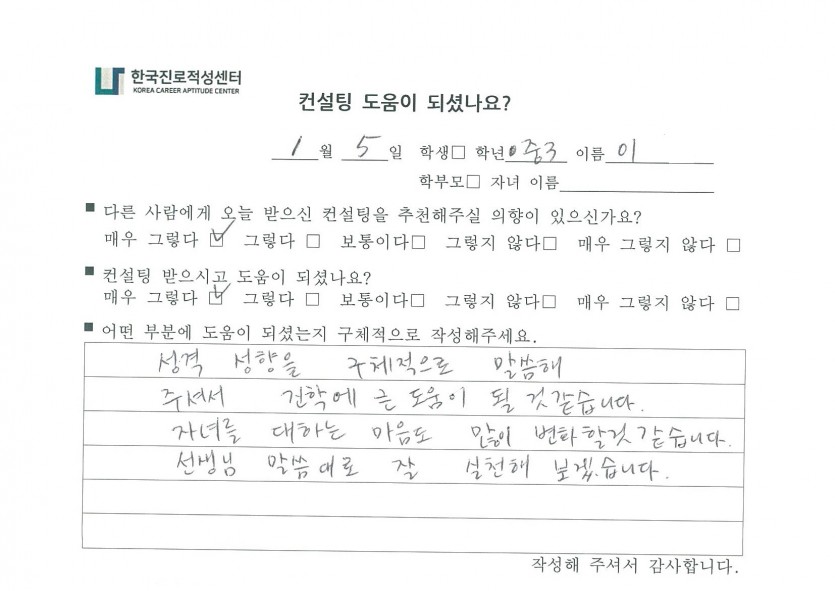 한국진로적성센터
KOREA CAREER APTITUDE CENTER
컨설팅 도움이 되셨나요?
1월 5일 학생□ 학년 중3 이름 이
학부모□ 자녀 이름
■ 다른 사람에게 오늘 받으신 컨설팅을 추천해주실 의향이 있으신가요?
매우 그렇다 ☑ 그렇다 □ 보통이다□ 그렇지 않다□ 매우 그렇지 않다 □
■ 컨설팅 받으시고 도움이 되셨나요?
매우 그렇다 ☑ 그렇다 □ 보통이다□ 그렇지 않다□ 매우 그렇지 않다 □
■ 어떤 부분에 도움이 되셨는지 구체적으로 작성해주세요.
성격 성향을 구체적으로 말씀해
주셔서 진학에 큰 도움이 될 것 같습니다.
자녀를 대하는 마음도 많이 변화할것 같습니다.
선생님 말씀대로 잘 실천해 보겠습니다.
작성해 주셔서 감사합니다.